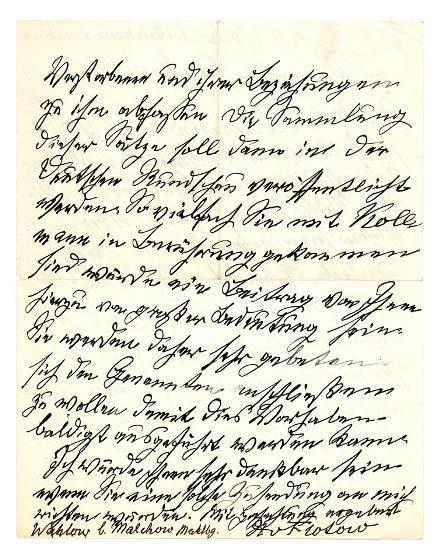 Verstorbenen und ihrer Beziehungen
zu ihm abfassen. Die Sammlung
dieser Sätze soll dann in der
Deutschen Rundschau veröffentlicht
werden. Sovielfach Sie mit Koll-
mann in Berührung gekommen
sind würde ein Beitrag von Ihnen
hierzu von großer Bedeutung sein.
Sie werden daher sehr gebeten
sich den Genannten anschließen
zu wollen damit dies Vorhaben
baldigst ausgeführt werden kann.
Ich würde Ihnen sehr dankbar sein
wenn Sie eine solche Zusendung an mich
richten würden. ergebenst
Wahlow b. Malchow Mecklbg. v Flotow